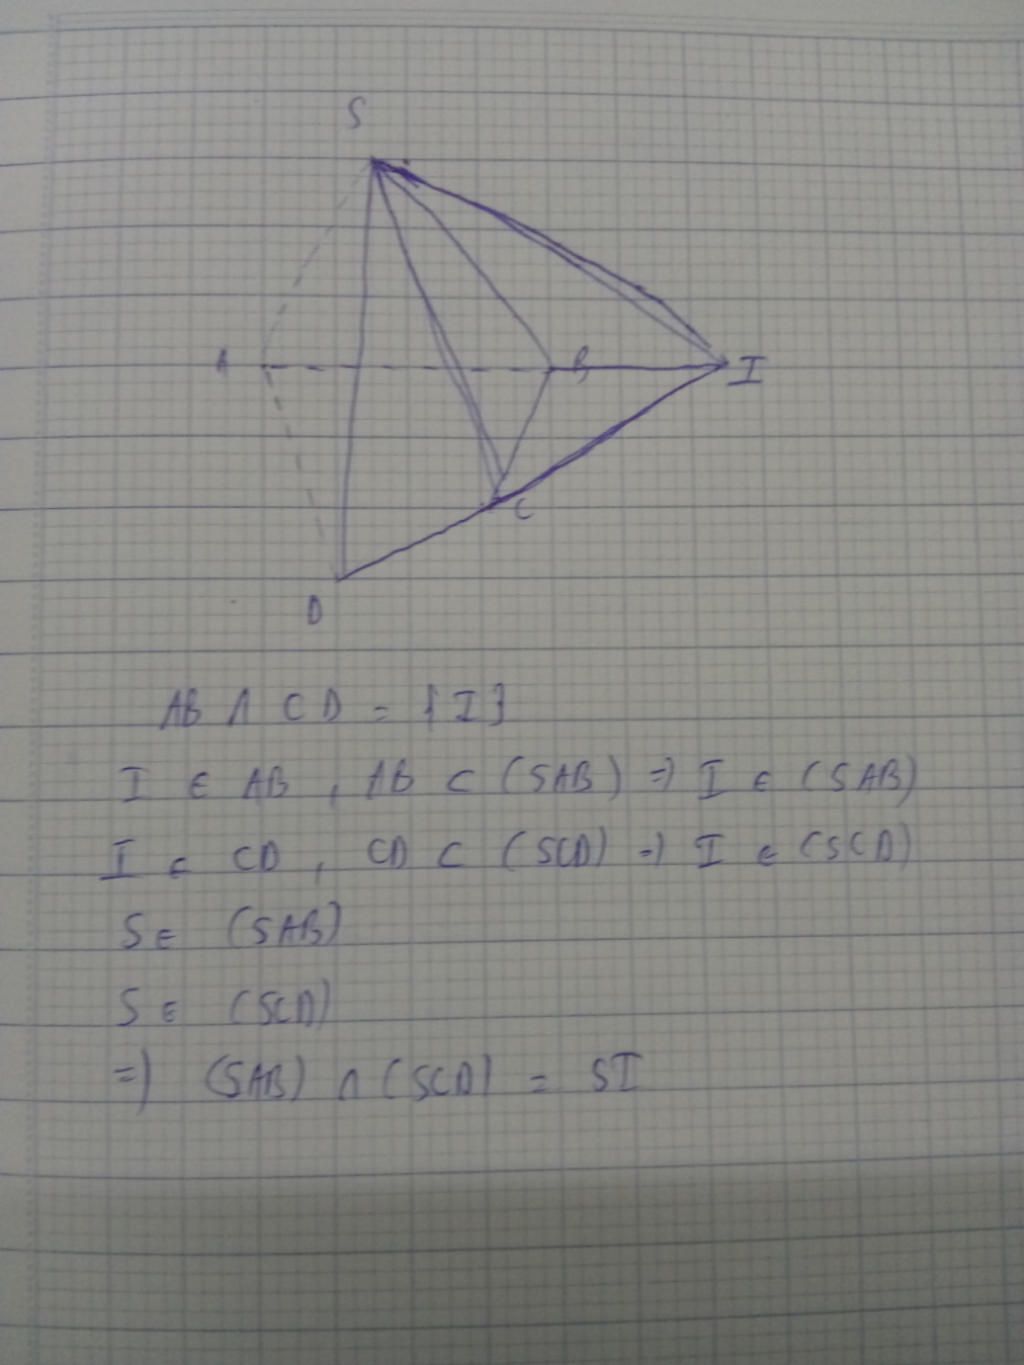 S
A
B
I
C
D
AB ∩ CD = {I}
I ∈ AB , AB ⊂ (SAB) => I ∈ (SAB)
I ∈ CD , CD ⊂ (SCD) => I ∈ (SCD)
S ∈ (SAB)
S ∈ (SCD)
=> (SAB) ∩ (SCD) = SI